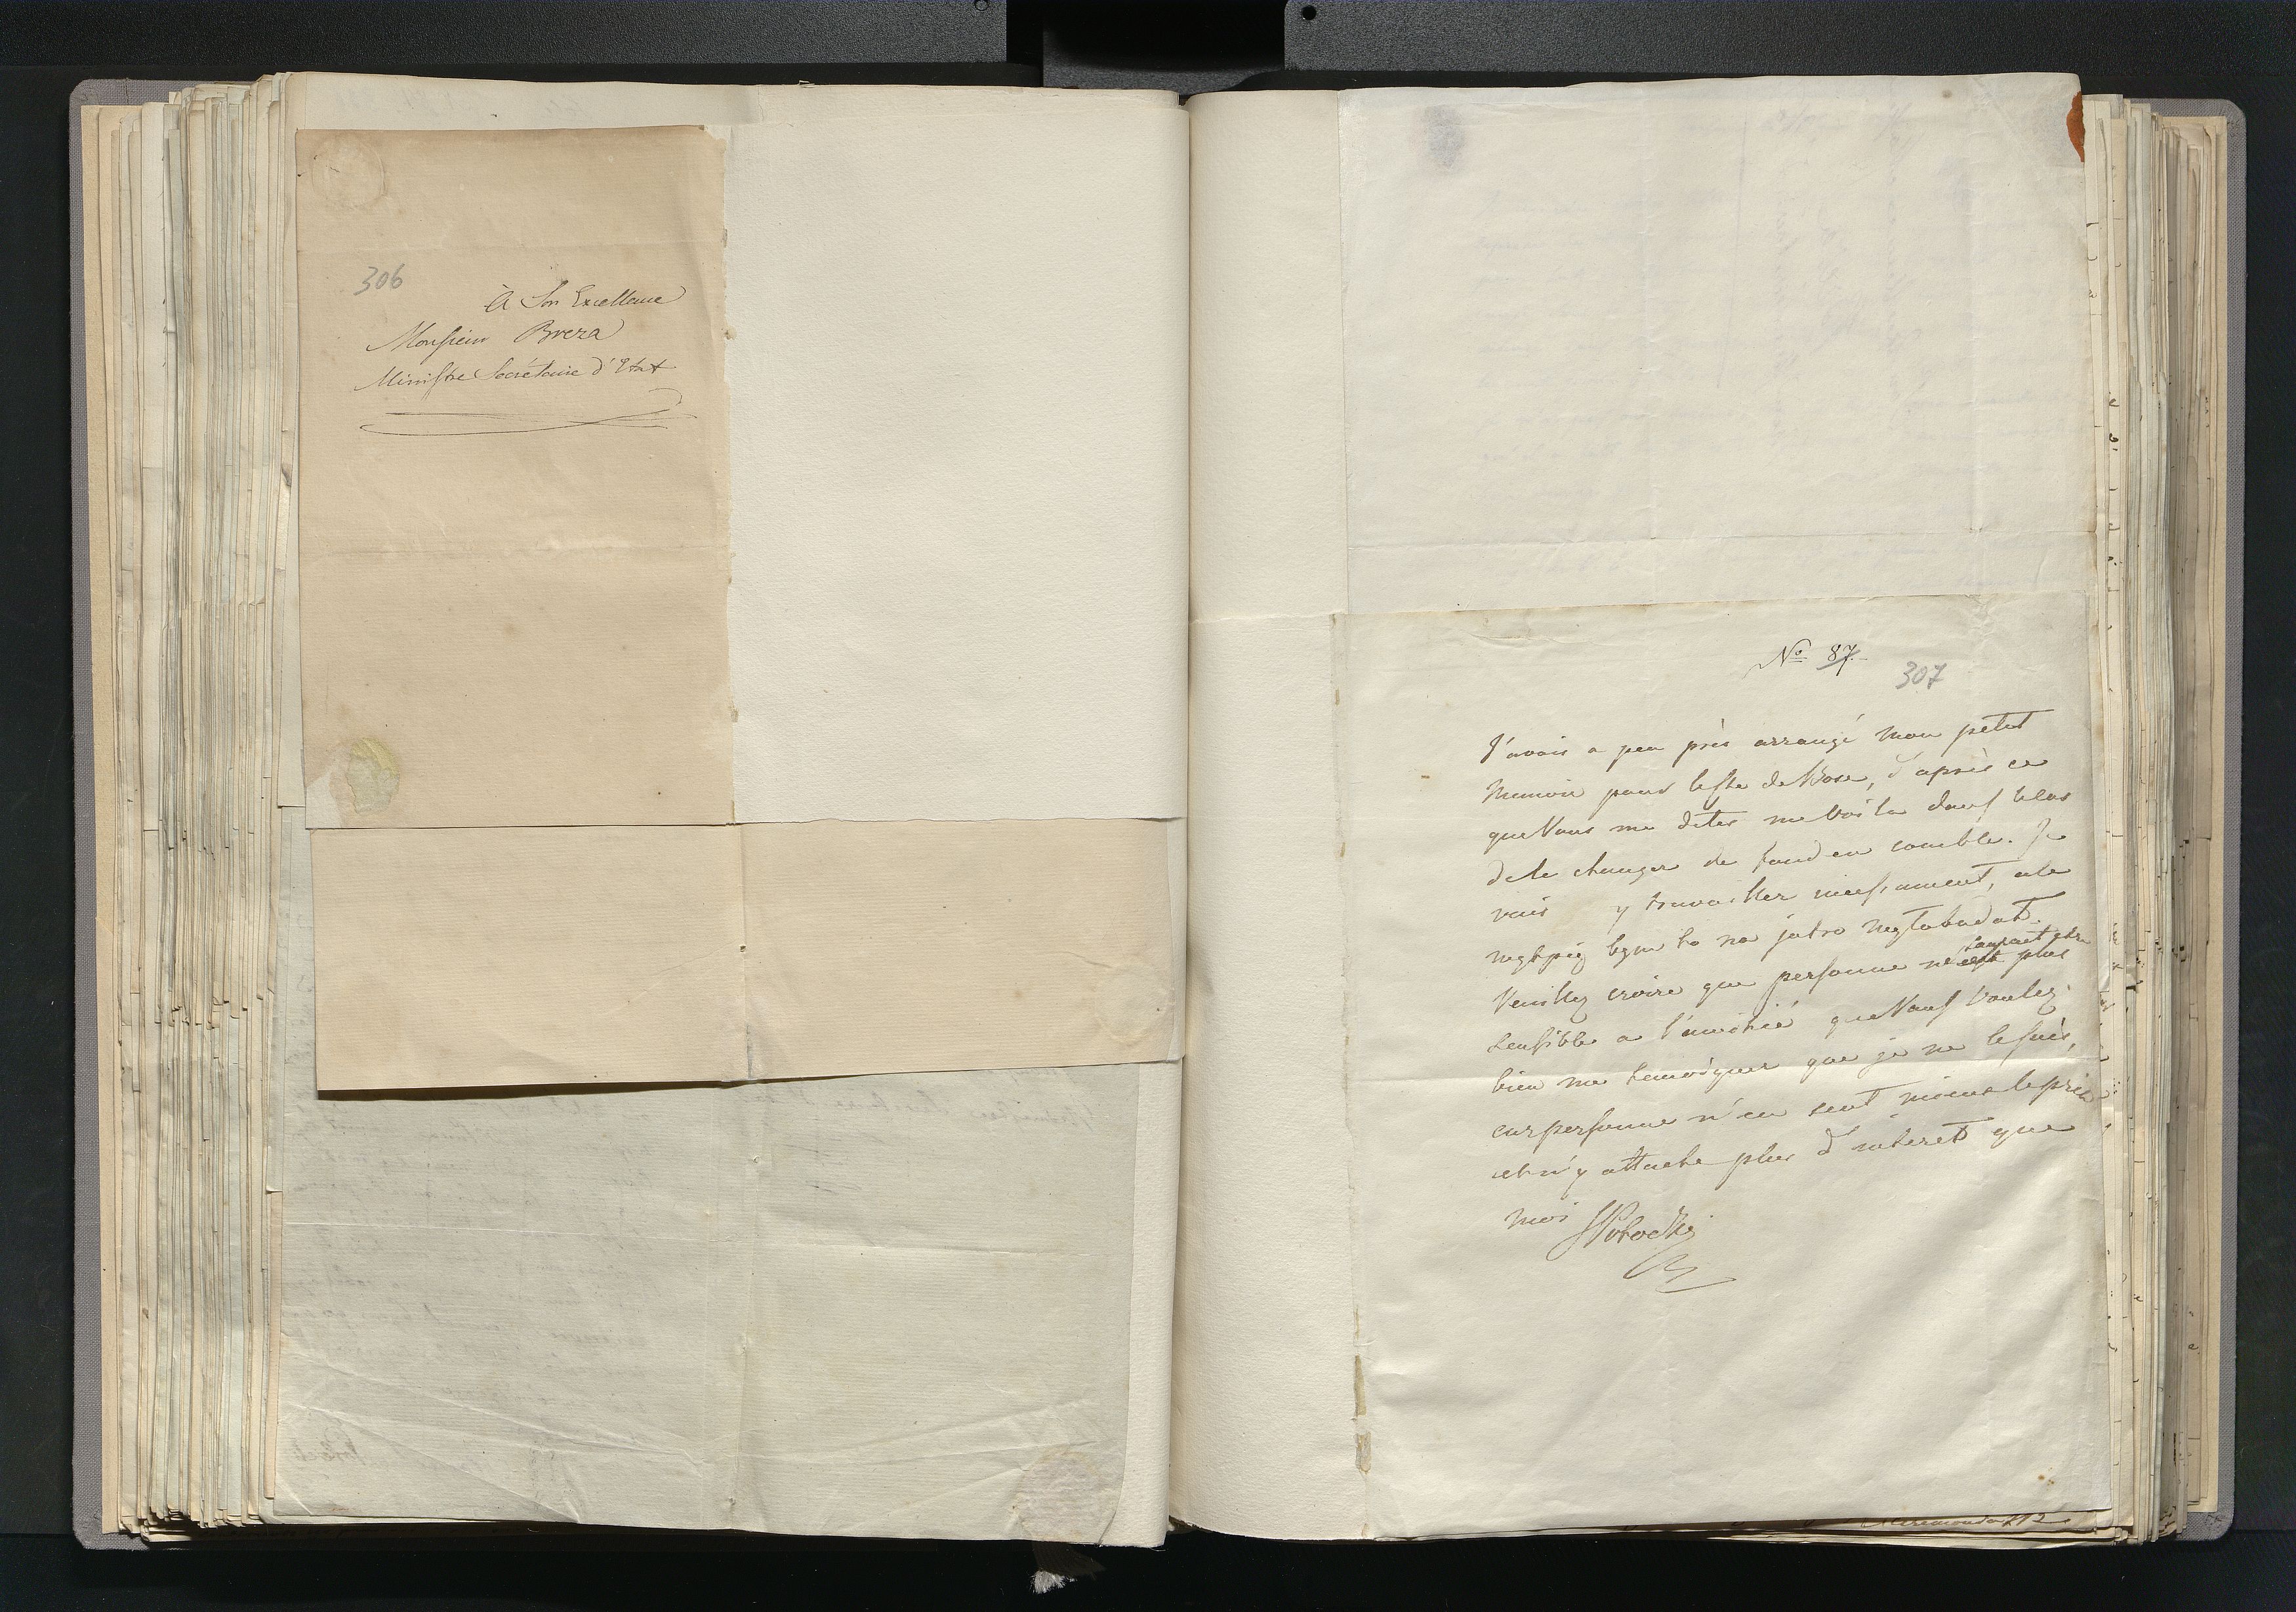 306
À Son Excellence
Monsieur Breza
Ministre Secrétaire d'Etat
No 87.
307
J'avais a peu près arrangé mon petit
memoire pour d'après ce
que Vous me dites me voila dans le cas
de le changer de fond en comble. Je
vais y travailler incessament, ale
wątpię bym to na jutro wygtabudat.
Veuillez croire que personne ne sauroit etre plus
sensible a l'amitié que Vous voulez
bien me temoigner que je ne le suis,
car personne n'en sent mieux le prix
et n'y attache plus d'interet que
moi SPotocki